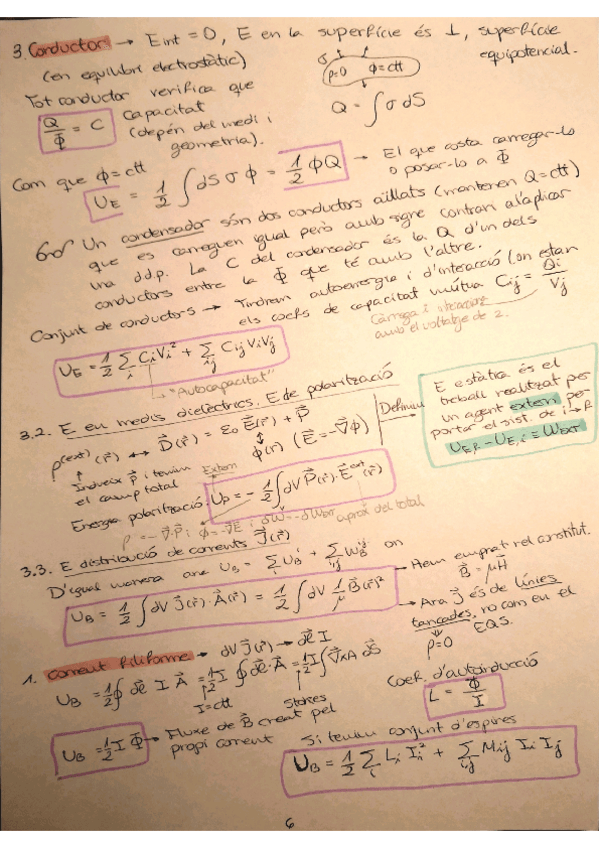 3. Conductor → Eint = 0, E en la superfície és ⊥, superfície
equipotencial.
(en equilibri electrostàtic)
ρ=0 ϕ=ctt
Tot conductor verifica que
Q/Φ = C Capacitat
(depèn del medi i
geometria).
Q = ∫σdS
Com que ϕ=ctt
U_E = 1/2 ∫dS σ ϕ = 1/2 ϕQ → El que costa carregar-lo
o posar-lo a Φ
Un condensador són dos conductors aïllats (mantenen Q=ctt)
que es carreguen igual però amb signe contrari al aplicar
una d.d.p. La C del condensador és la Q d'un dels
conductors entre la Φ que té amb l'altre.
Conjunt de conductors → Tindrem autoenergia i d'interacció (on estan
els coefs de capacitat mútua C_ij = Q_i/V_j
Càrrega i interacció
amb el voltatge de 2.
U_E = 1/2 Σ_i C_i V_i² + Σ_ij C_ij V_i V_j
"Autocapacitat"
3.2. E en medis dielèctrics. E de polarització
ρ^(ext)(r⃗) ↔ D⃗(r⃗) = ε₀ E⃗(r⃗) + P⃗
ϕ(r⃗) (E⃗=-∇⃗ϕ)
Definim
E estàtica és el
treball realitzat per
un agent extern per
portar el sist. de i → f
U_E,f - U_E,i = W_ext
Indueix P⃗ i tenim
el camp total
Extern
Energia polarització: U_P = - 1/2 ∫dV P⃗(r⃗)·E⃗^ext(r⃗)
ρ = -∇⃗·P⃗ ; ϕ=-∇⃗E ; aprox del total
3.3. E distribució de corrents J⃗(r⃗)
D'igual manera que U_B = Σ_i U_B^i + Σ_ij W_B^ij on
U_B = 1/2 ∫dV J⃗(r⃗)·A⃗(r⃗) = 1/2 ∫dV 1/μ B⃗(r⃗)²
→ Hem emprat rel. constitut.
B⃗ = μH⃗
→ Ara J⃗ és de línies
tancades, no com en el
EQS.
ρ=0
1. Corrent filiforme → dV J⃗(r⃗) → dl⃗ I
U_B = 1/2 ∮ dl⃗ I A⃗ = 1/2 I ∮ dl⃗·A⃗ = 1/2 I ∫∇⃗×A⃗ dS⃗
I=ctt
Stokes
Coef. d'autoinducció
L = Φ/I
U_B = 1/2 I Φ → Fluxe de B⃗ creat pel
propi corrent
Si tenim conjunt d'espires
U_B = 1/2 Σ_i L_i I_i² + Σ_ij M_ij I_i I_j
6